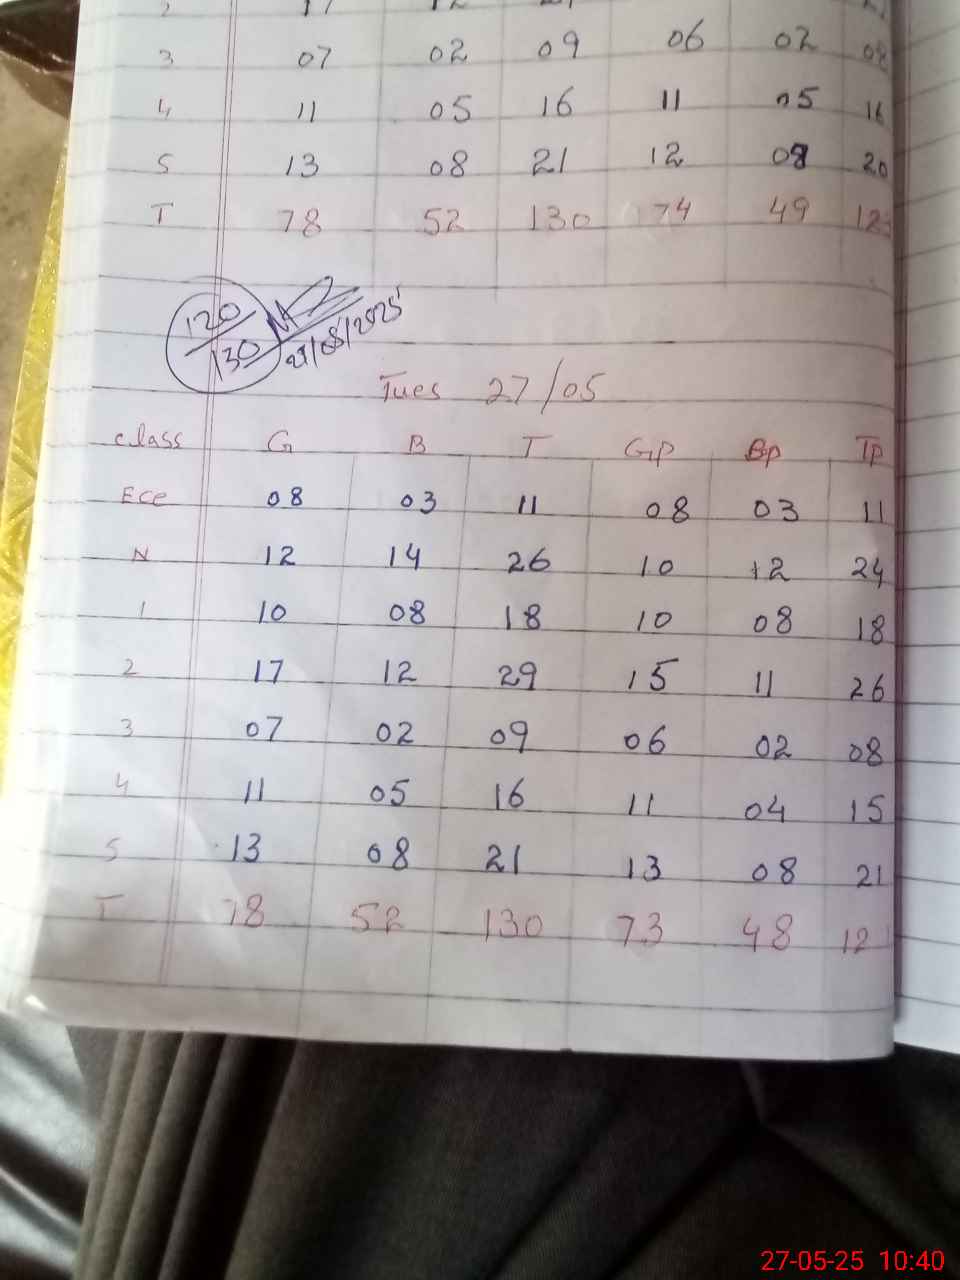 3 07 02 09 06 02 08
4 11 05 16 11 05 16
5 13 08 21 12 08 20
T 78 52 130 74 49
120
130
Tues 27/05
class G B T GP BP TP
Ece 08 03 11 08 03 11
N 12 14 26 10 12 24
1 10 08 18 10 08 18
2 17 12 29 15 11 26
3 07 02 09 06 02 08
4 11 05 16 11 04 15
5 13 08 21 13 08 21
T 78 52 130 73 48 12
27-05-25 10:40